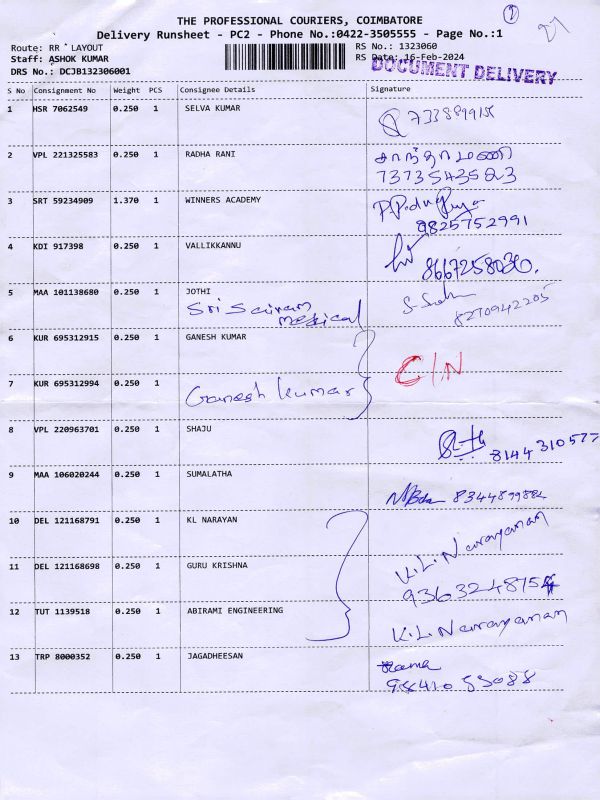 THE PROFESSIONAL COURIERS, COIMBATORE
Delivery Runsheet - PC2 - Phone No.:0422-3505555 - Page No.:1
Route: RR LAYOUT RS No.: 1323060
Staff: ASHOK KUMAR RS Date: 16-Feb-2024
DRS No.: DCJB132306001 DOCUMENT DELIVERY
S No Consignment No Weight PCS Consignee Details Signature
1 HSR 7062549 0.250 1 SELVA KUMAR
2 VPL 221325583 0.250 1 RADHA RANI சாந்தாமணி
7373543523
3 SRT 59234909 1.370 1 WINNERS ACADEMY
9825752991
4 KDI 917398 0.250 1 VALLIKKANNU
8667258030.
5 MAA 101138680 0.250 1 JOTHI
Sri Sairam Medical 8270942205
6 KUR 695312915 0.250 1 GANESH KUMAR
C/N
7 KUR 695312994 0.250 1
Ganesh Kumar
8 VPL 220963701 0.250 1 SHAJU
8144310577
9 MAA 106020244 0.250 1 SUMALATHA
8344899884
10 DEL 121168791 0.250 1 KL NARAYAN
K.L.Narayanan
11 DEL 121168698 0.250 1 GURU KRISHNA
9363248754
12 TUT 1139518 0.250 1 ABIRAMI ENGINEERING
K.L.Narayanan
13 TRP 8000352 0.250 1 JAGADHEESAN Rama
9841053088